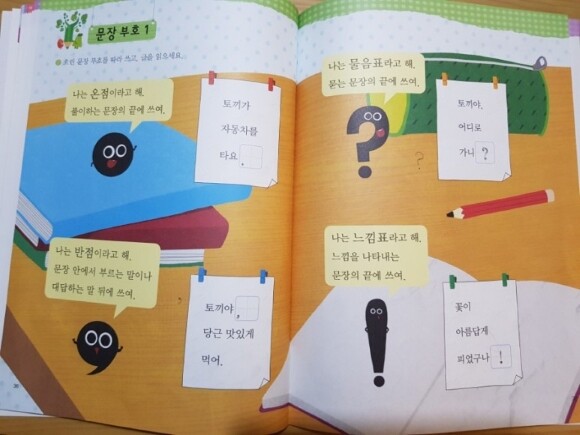 문장 부호 1
흐린 문장 부호를 따라 쓰고, 글을 읽으세요.
나는 온점이라고 해.
풀이하는 문장의 끝에 쓰여.
토끼가
자동차를
타요.
나는 반점이라고 해.
문장 안에서 부르는 말이나
대답하는 말 뒤에 쓰여.
토끼야,
당근 맛있게
먹어.
나는 물음표라고 해.
묻는 문장의 끝에 쓰여.
토끼야,
어디로
가니?
나는 느낌표라고 해.
느낌을 나타내는
문장의 끝에 쓰여.
꽃이
아름답게
피었구나!